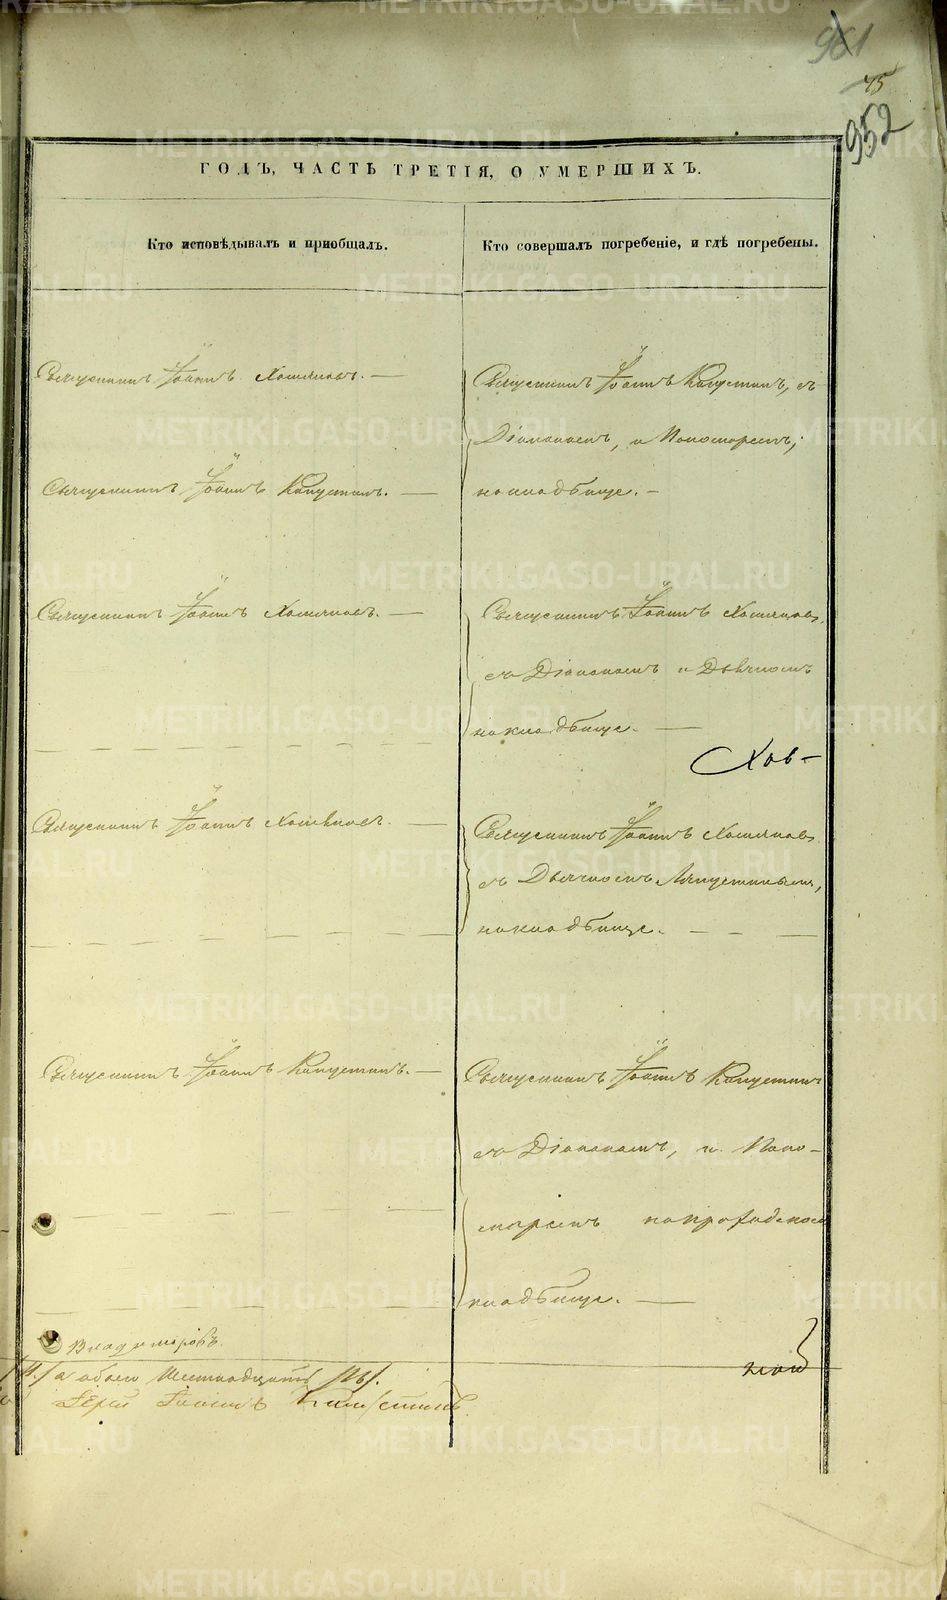 961
45
952
ГОДЪ, ЧАСТЬ ТРЕТІЯ, О УМЕРШИХЪ.
Кто исповѣдывалъ и пріобщалъ.
Кто совершалъ погребеніе, и гдѣ погребены.
Священникъ Іоаннъ Хомяковъ. —
Священникъ Іоаннъ Капустинъ, съ
Діакономъ, и Пономаремъ;
Священникъ Іоаннъ Капустинъ. —
на кладбище. —
Священникъ Іоаннъ Хомяковъ. —
Священникъ Іоаннъ Хомяковъ
съ Діакономъ и Дьячкомъ
на кладбище. —
Священникъ Іоаннъ Хомяковъ. —
Священникъ Іоаннъ Хомяковъ
съ Дьячкомъ Капустинымъ,
на кладбище. —
Священникъ Іоаннъ Капустинъ. —
Священникъ Іоаннъ Капустинъ
съ Діакономъ, и Поно-
маремъ на
кладбище. —
Владимировъ
а обоего Шестнадцать
Іерей Іоаннъ Капустинъ
METRIKI.GASO-URAL.RU